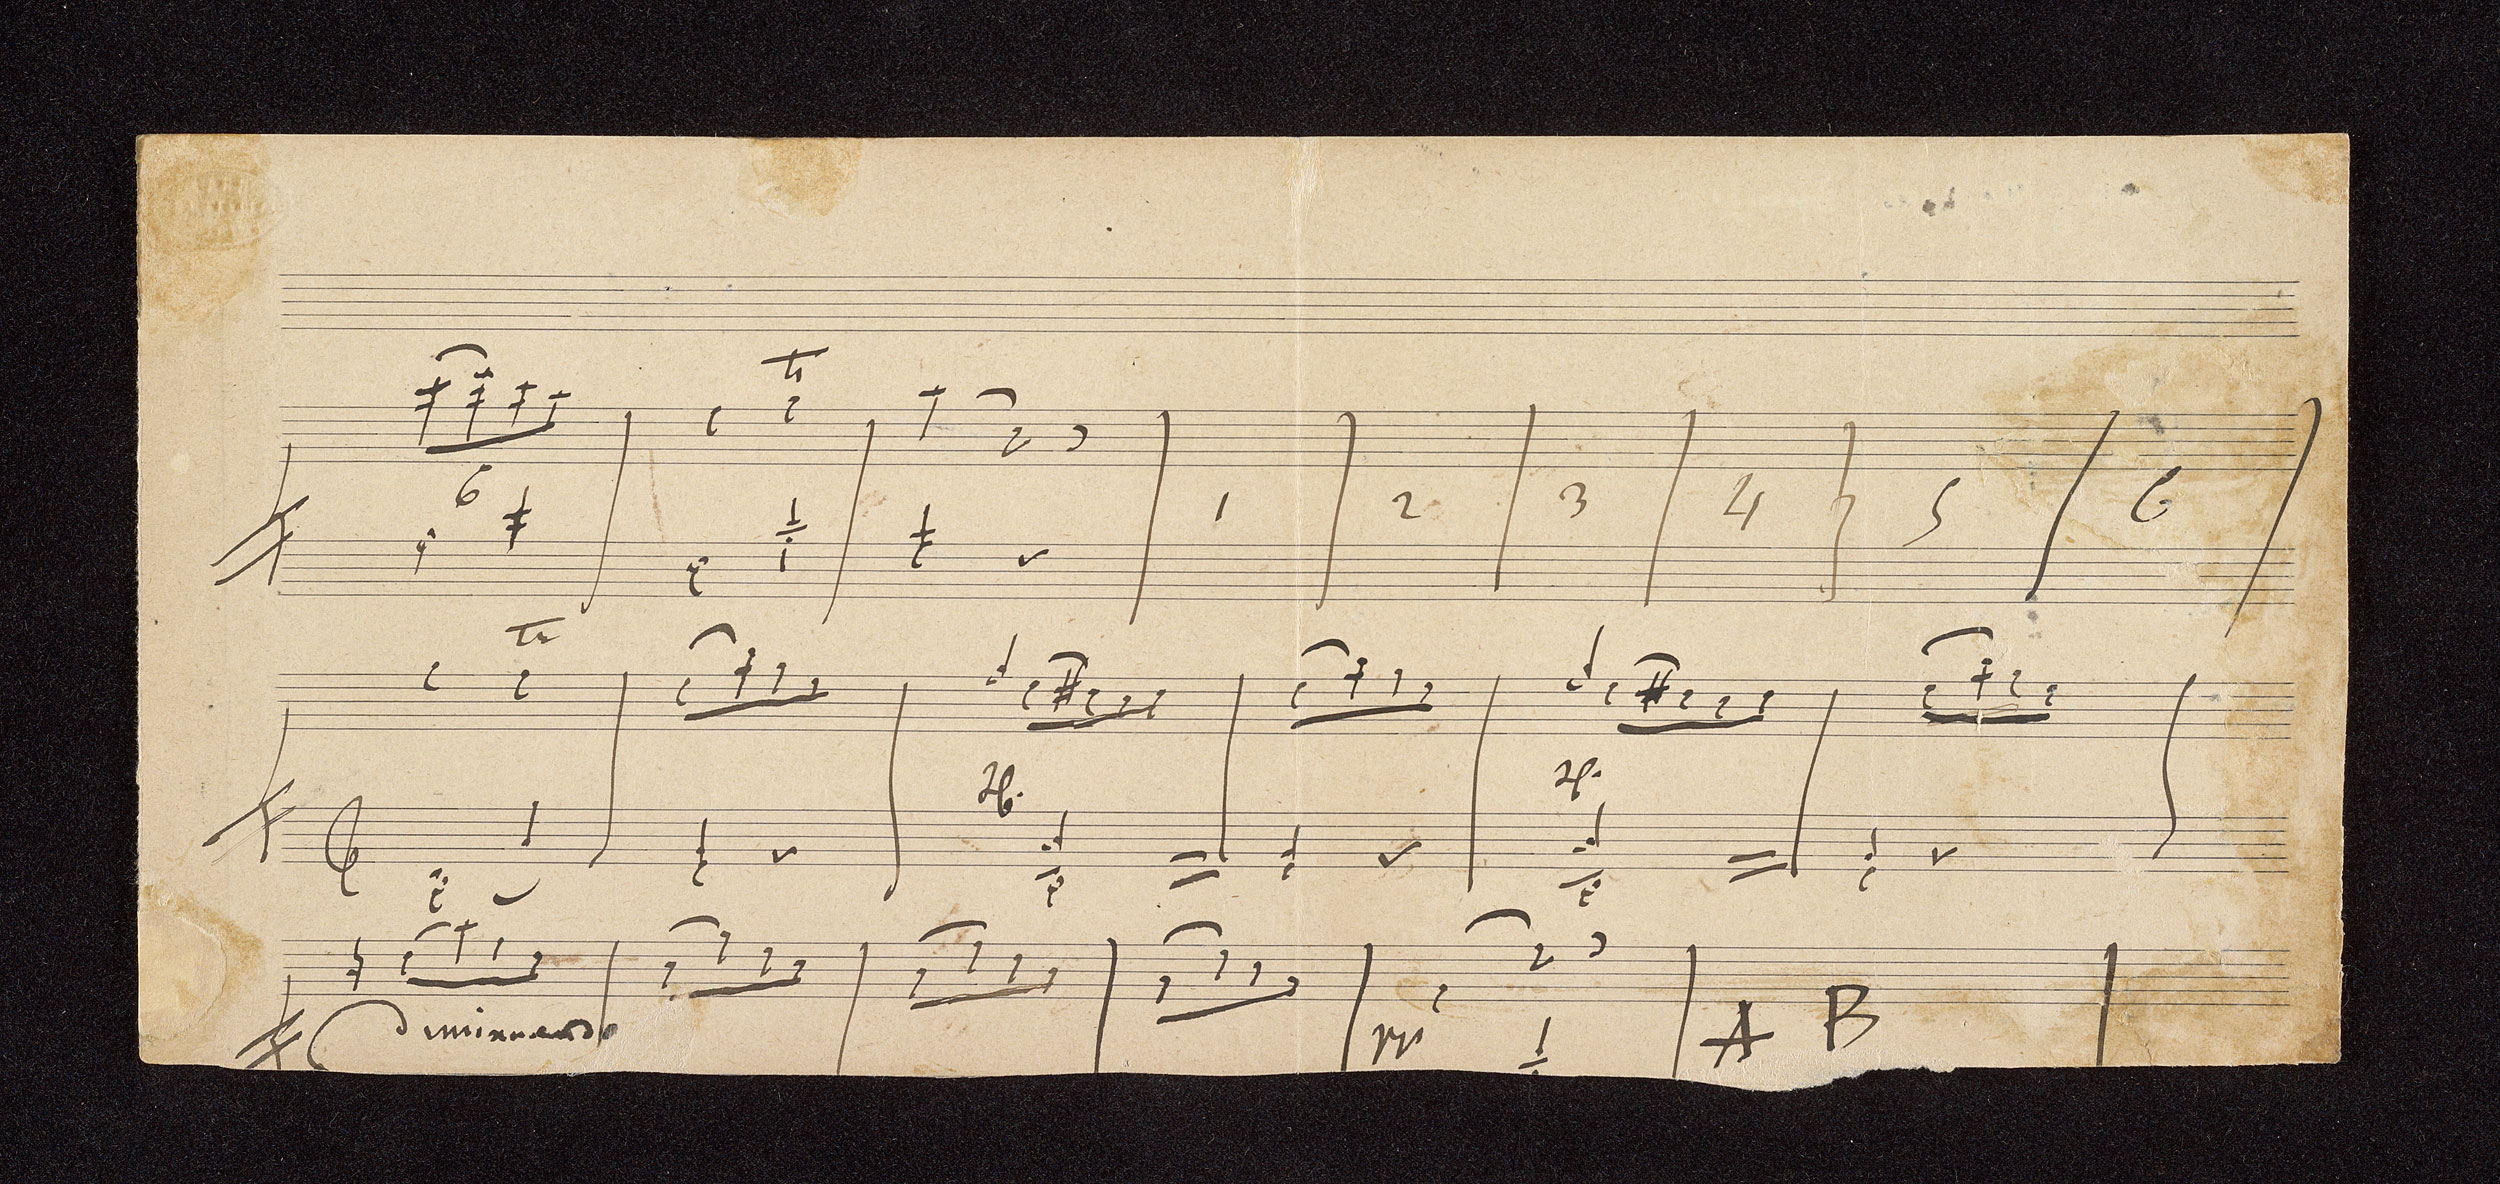 tr
6
1 2 3 4 5 6
tr
diminuendo pp A B